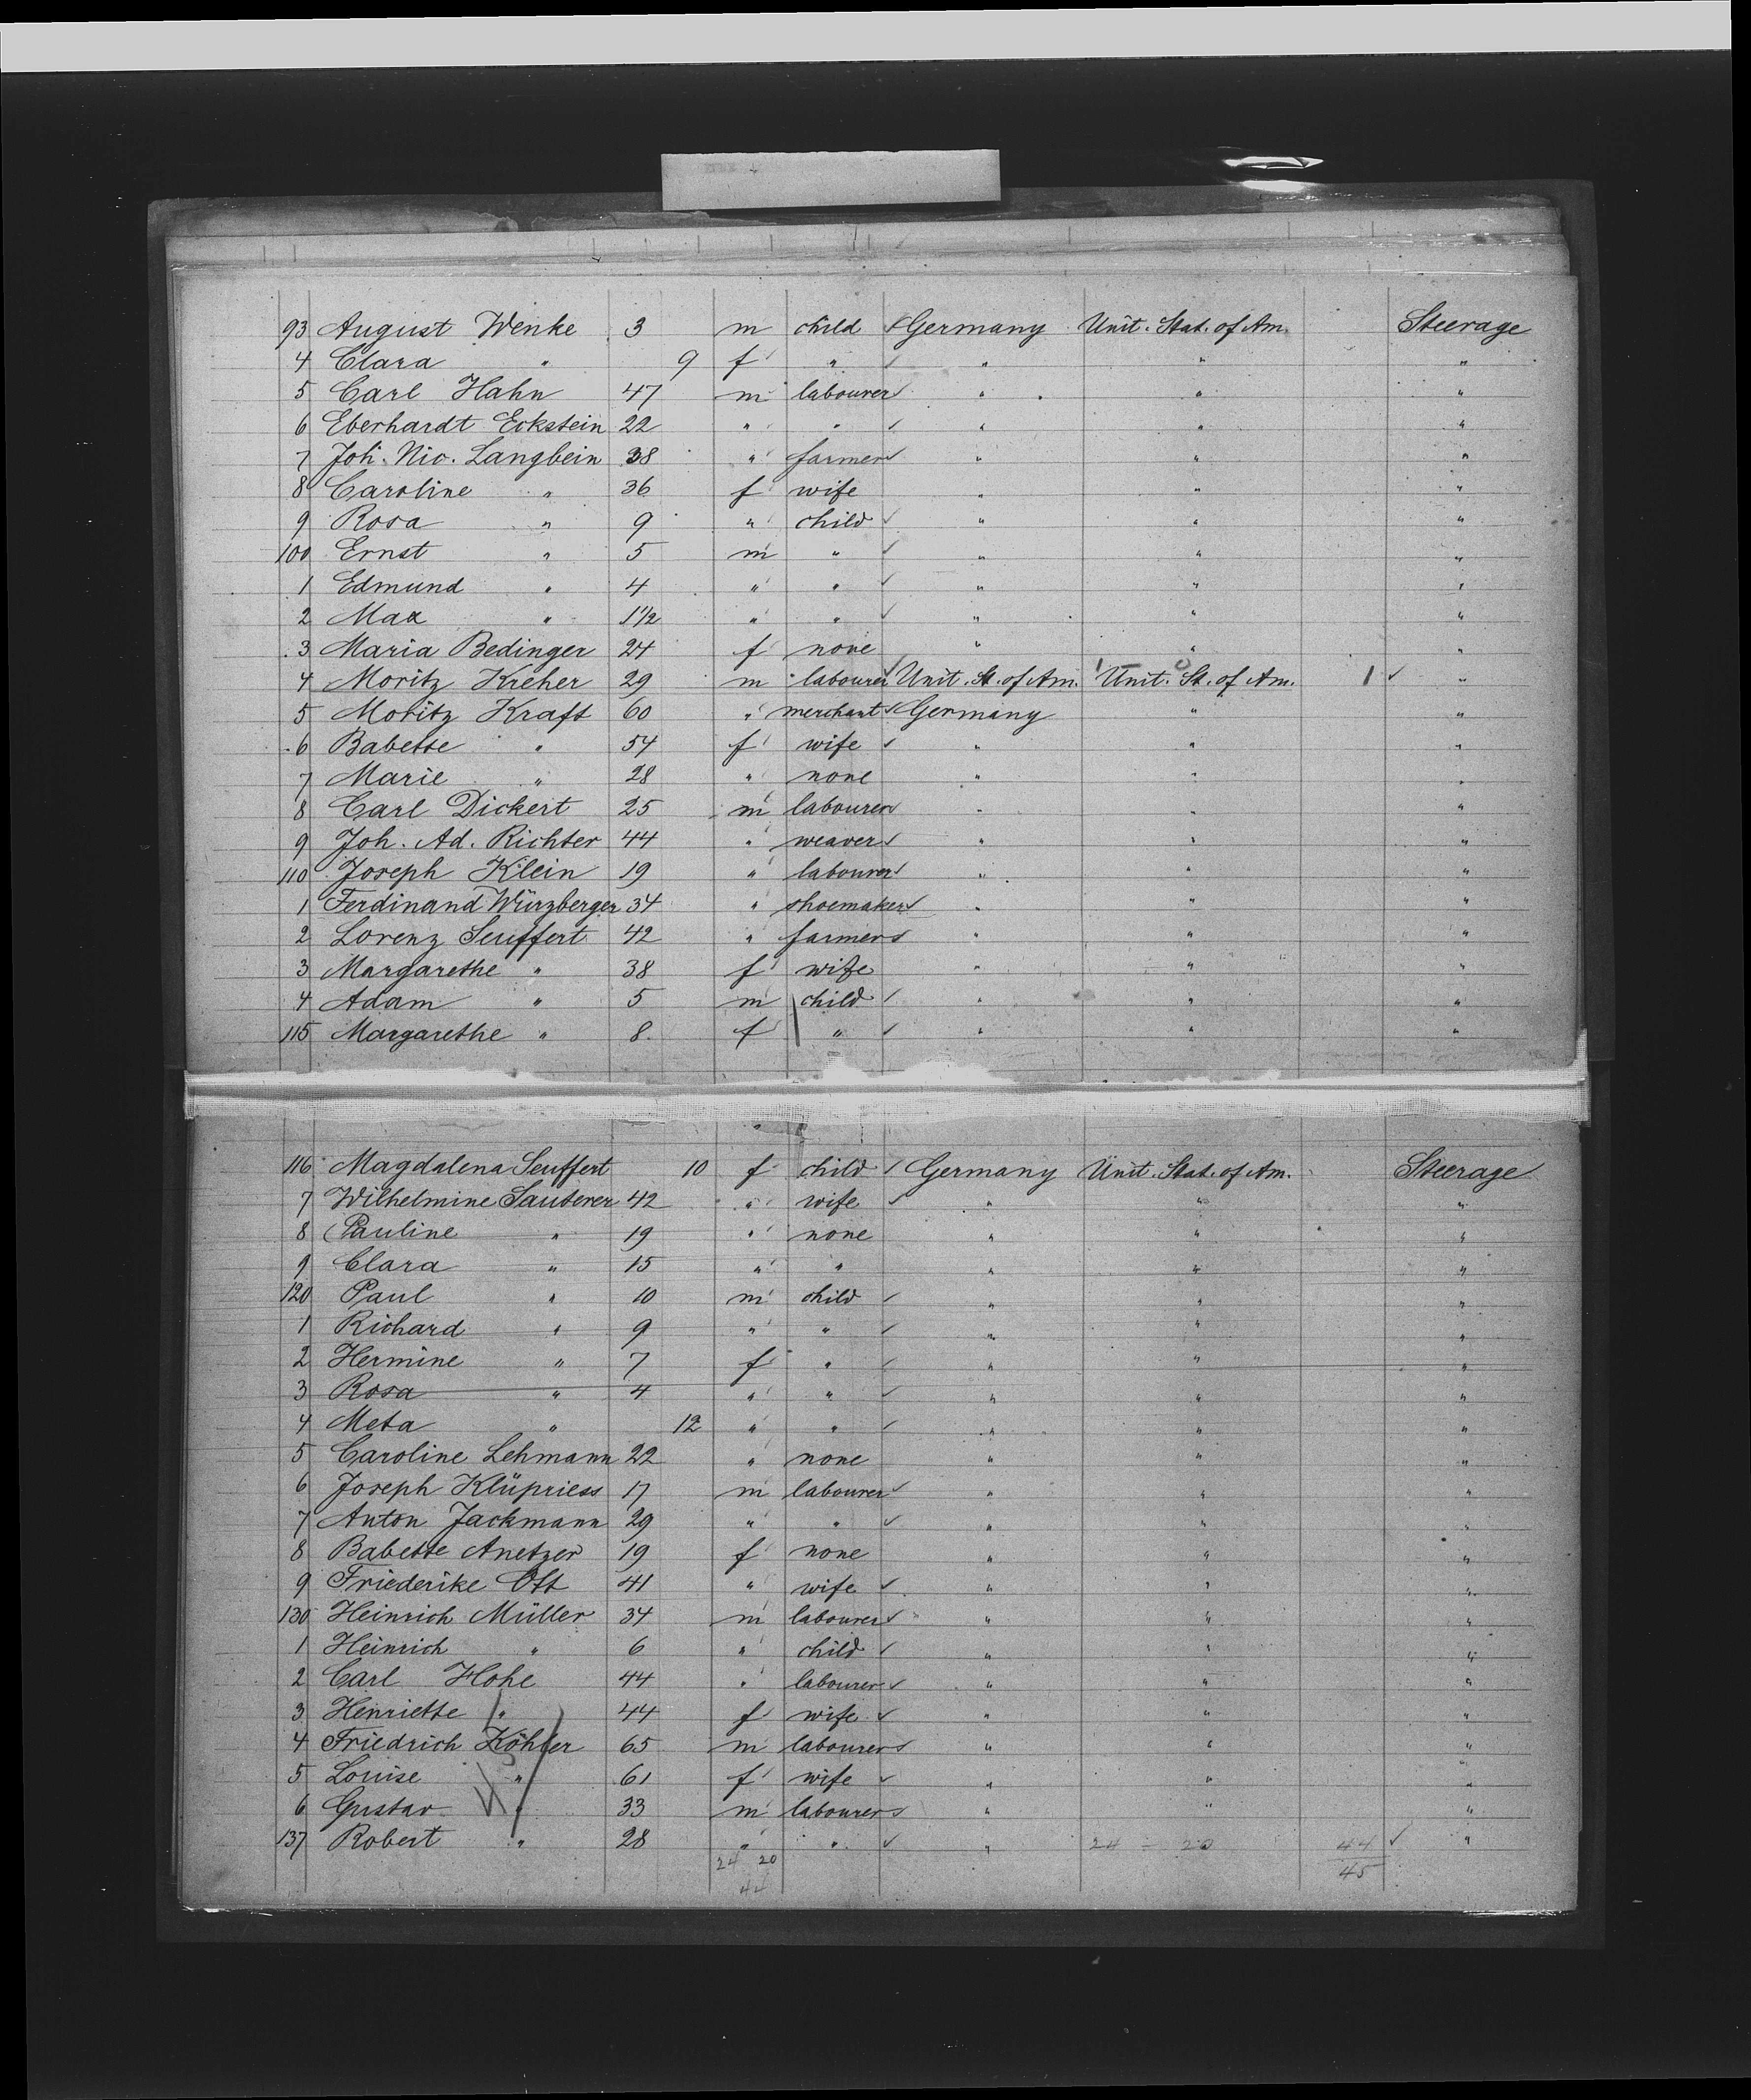 93 August Wenke 3 m child Germany Unit. Stat. of Am. Steerage
4 Clara " 9 f " " " "
5 Carl Hahn 47 m labourer " " "
6 Eberhardt Eckstein 22 " " " " "
7 Joh. Nic. Langbein 38 " farmer " " "
8 Caroline " 36 f wife " " "
9 Rosa " 9 " child " " "
100 Ernst " 5 m " " " "
1 Edmund " 4 " " " " "
2 Max " 1 1/2 " " " " "
3 Maria Bedinger 24 f none " " "
4 Moritz Kreher 29 m labourer Unit. St. of Am. Unit. St. of Am. 1 "
5 Moritz Kraft 60 " merchant Germany " "
6 Babette " 54 f wife " " "
7 Marie " 28 " none " " "
8 Carl Dickert 25 m labourer " " "
9 Joh. Ad. Richter 44 " weaver " " "
110 Joseph Klein 19 " labourer " " "
1 Ferdinand Würzberger 34 " shoemaker " " "
2 Lorenz Seuffert 42 " farmer " " "
3 Margarethe " 38 f wife " " "
4 Adam " 5 m child " " "
115 Margarethe " 8 f " " " "
116 Magdalena Seuffert 10 f child Germany Unit. Stat. of Am. Steerage
7 Wilhelmine Sauterer 42 " wife " " "
8 Pauline " 19 " none " " "
9 Clara " 15 " " " " "
120 Paul " 10 m child " " "
1 Richard " 9 " " " " "
2 Hermine " 7 f " " " "
3 Rosa " 4 " " " " "
4 Meta " 12 " " " " "
5 Caroline Lehmann 22 " none " " "
6 Joseph Klüpriess 17 m labourer " " "
7 Anton Jackmann 29 " " " " "
8 Babette Anetzer 19 f none " " "
9 Friederike Ott 41 " wife " " "
130 Heinrich Müller 34 m labourer " " "
1 Heinrich " 6 " child " " "
2 Carl Hohe 44 " labourer " " "
3 Henriette " 44 f wife " " "
4 Friedrich Köhler 65 m labourer " " "
5 Louise " 61 f wife " " "
6 Gustav " 33 m labourer " " "
137 Robert " 28 " " " 24 - 20 44 "
24 20 45
44